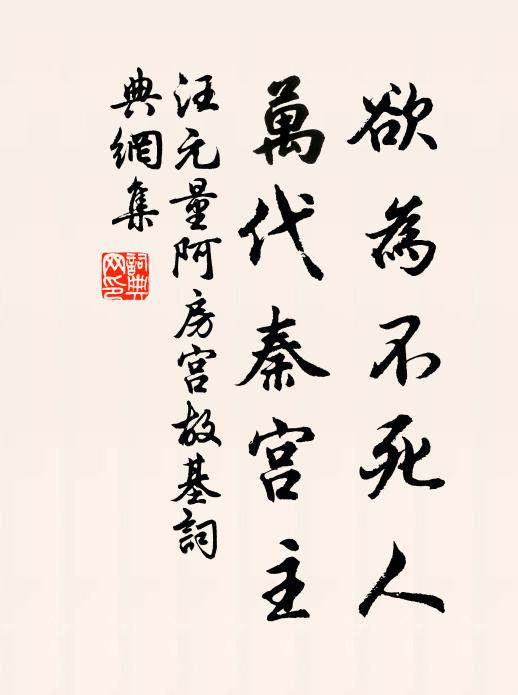 欲為不死人
萬代秦宮主
汪元量阿房宮故基詞
典網集
詞典网印